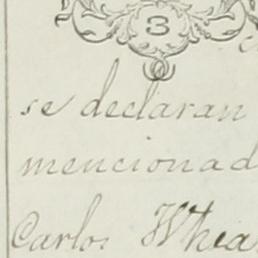 3
se declaran
mencionad
Carlos Whea